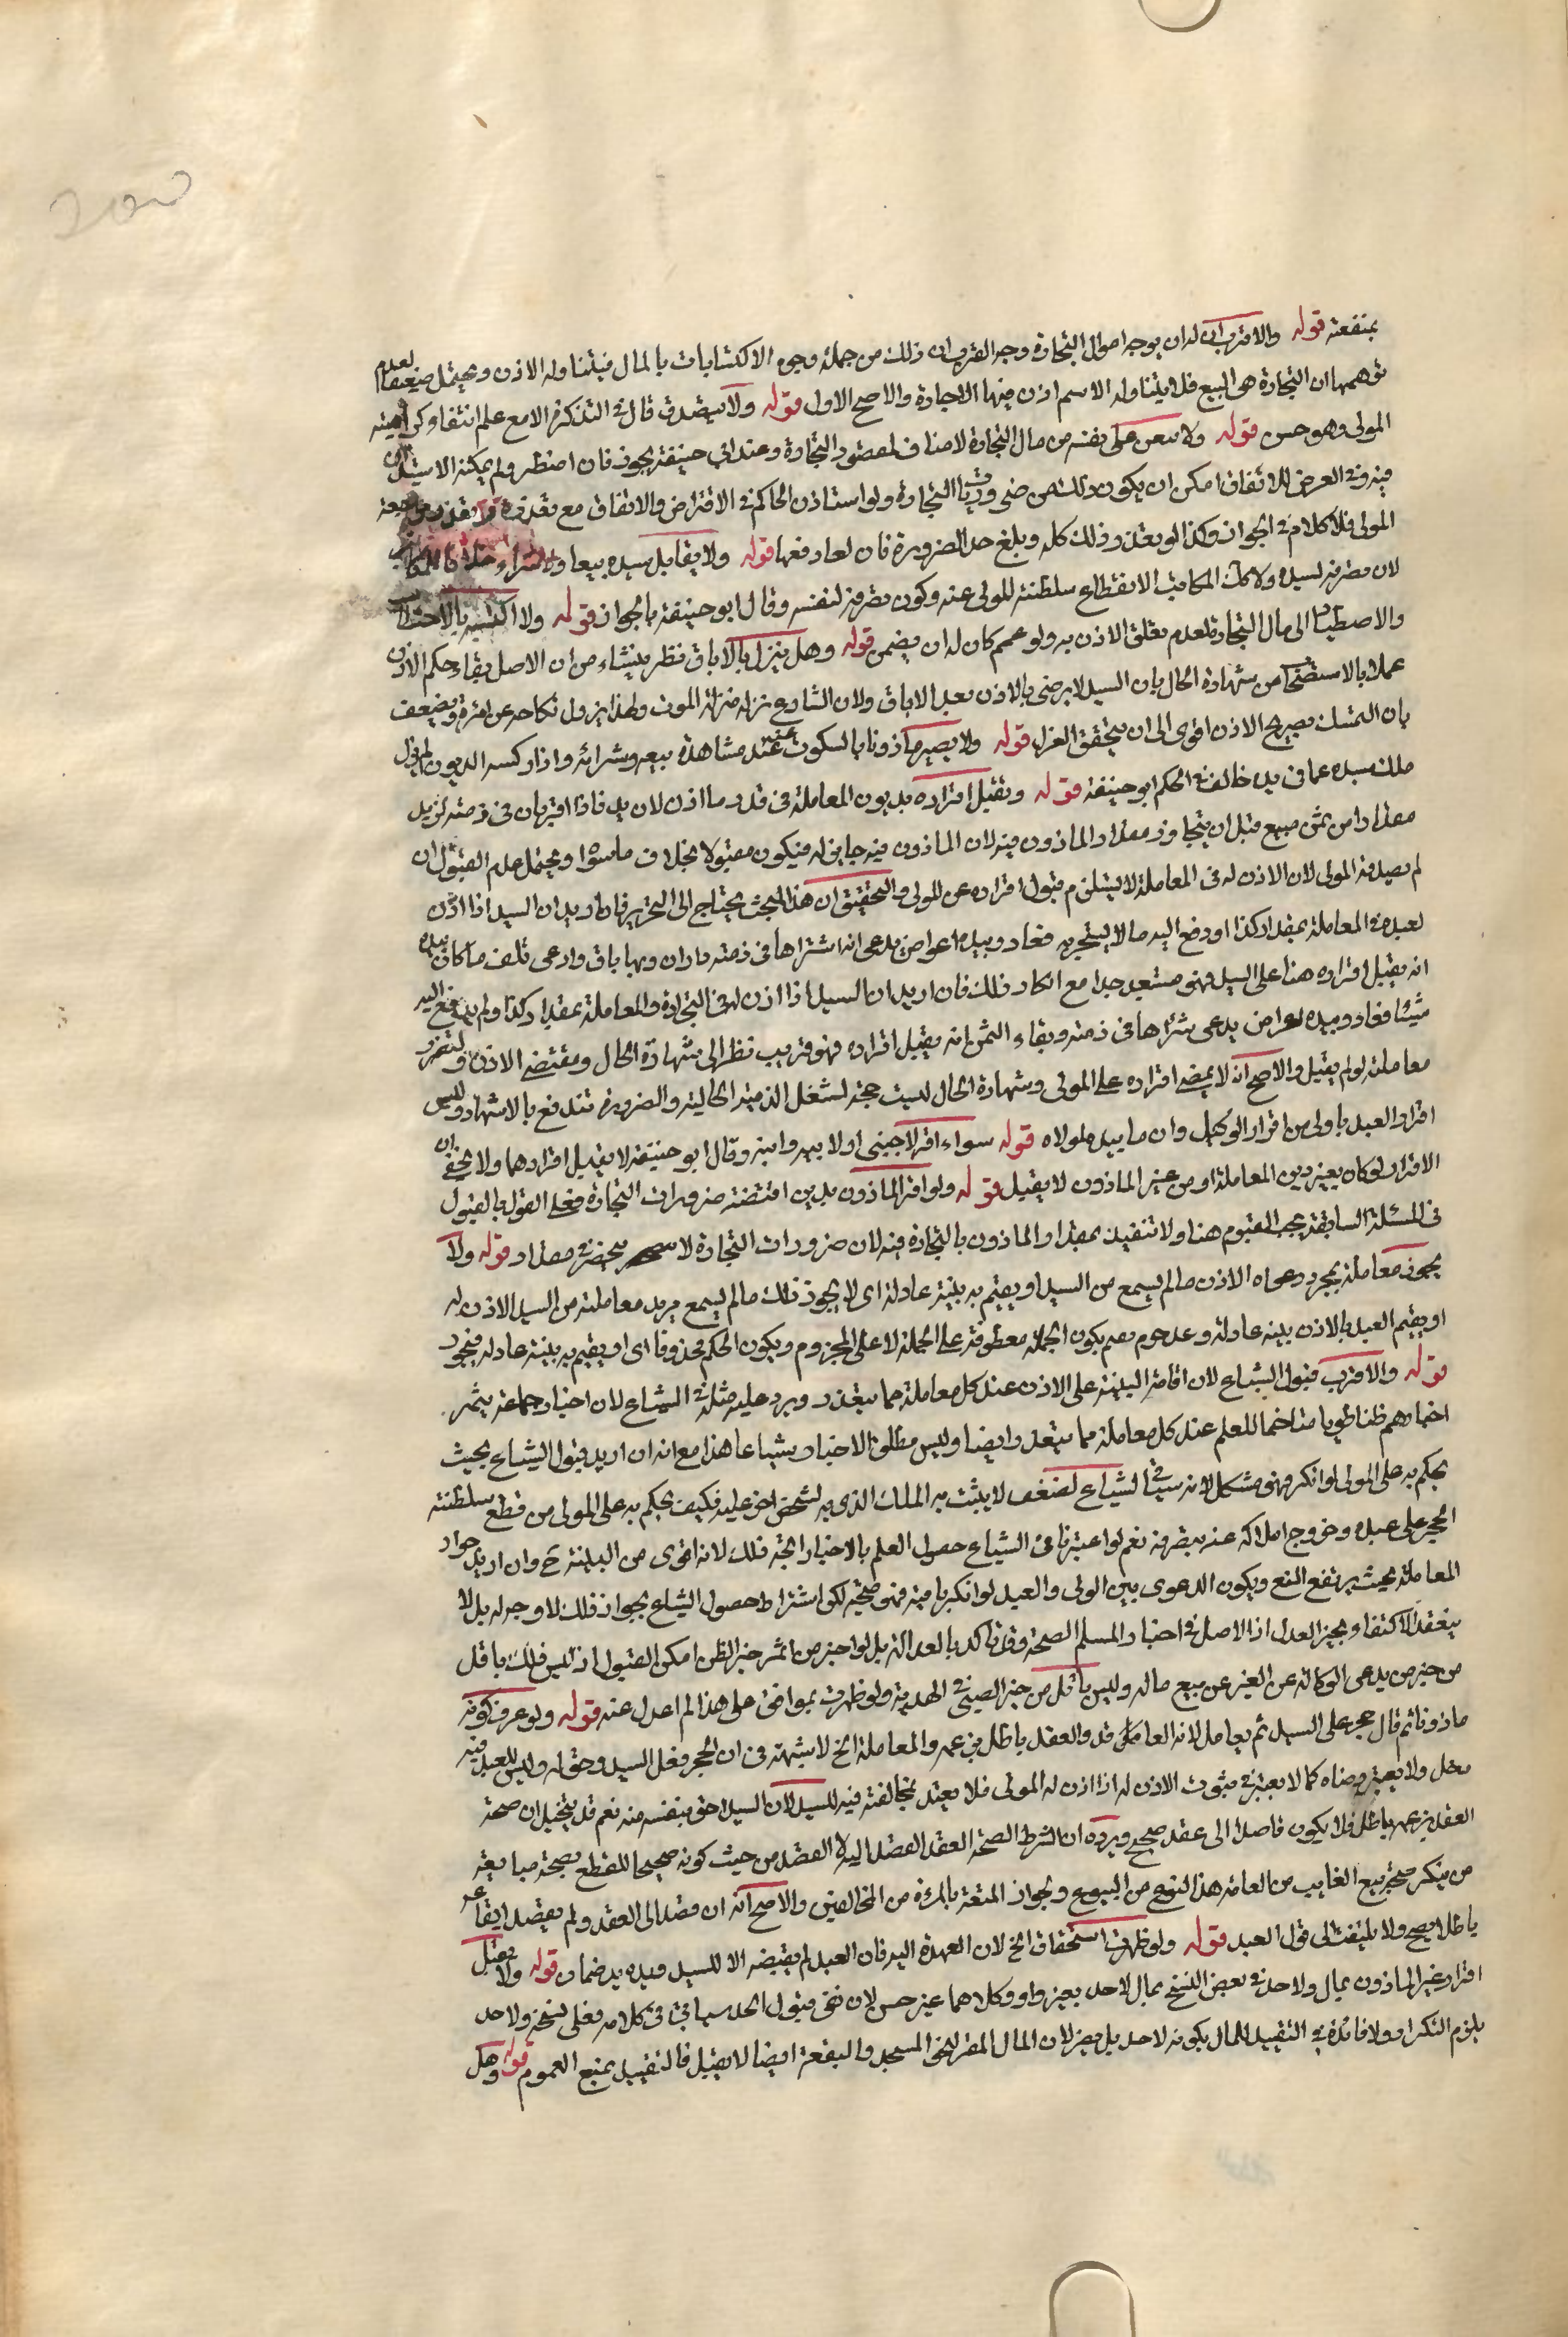 بمنفعته قوله والاقرب ان له ان يوجه اموال التجارة وجه القرب ان ذلك من جملة وجوه الاكتسابات بالمال فيتناوله الاذن ويحتمل ضعيفا لعدم
توهمها ان التجارة هى البيع فلا يتناوله الاسم اذن فيها الاجارة والاصح الاول قوله ولا يتصدق قال فى التذكرة الا مع علم انتفاء كراهيته
المولى وهو حسن قوله ولا ينفق على نفسه من مال التجارة لامنافى لمقصود التجارة وعند ابى حنيفة يجوز فان اضطر ولم يمكنه الاستيذان
فيه وفى العرض للانفاق امكن ان يكون ذلك من ضروريات التجارة ولو استاذن الحاكم فى الاقتراض والانفاق مع تعذر
المولى فلا كلام فى الجواز وكذا لو تعذر ذلك كله وبلغ حد الضرورة فان لعادفعها قوله ولا يقابل سيده بيعا وشراء خلافا للمكاتب
لان تصرفه لسيده ولا كك المكاتب لانقطاع سلطنة المولى عنه وكون تصرفه لنفسه وقال ابو حنيفة بالجواز قوله ولا اكتسبه بالاحتطاب
والاصطياد الى مال التجارة لعدم تعلق الاذن به ولو عمم كان له ان يضمن قوله وهل ينزل بالاباق نظر ينشاء من ان الاصل بقاء حكم الاذن
عملا بالاستصحاب من شهادة الحال بان السيد لا يرضى بالاذن بعد الاباق ولان الشارع نزله منزلة الموت ولهذا يزول نكاحه عن امرته ويضعف
بان التمسك بصريح الاذن اقوى الى ان يتحقق العزل قوله ولا يصير ماذونا بالسكوت عند مشاهدة بيعه وشرائه واذا ركبته الديون لم يزل
ملك سيده عما فى يده خالف فى الحكم ابو حنيفة قوله ويقبل اقراره بديون المعاملة فى قدر ما اذن لان يد فاذا اقر بان فى ذمته لزيد
مقدارا من ثمن مبيع قبل ان يتجاوز مقدار الماذون فيه لان الماذون فيه جايز له فيكون مقبولا بخلاف ما سواه ويحتمل عدم القبول ان
لم يصدقه المولى لان الاذن له فى المعاملة لا يستلزم قبول اقراره عن المولى والتحقيق ان هذا البحث يحتاج الى التحرير فان اريد ان السيد اذا اذن
لعبده فى المعاملة بمقدار كذا او دفع اليه مالا ليتجر به فعاد وبيده اعواض يدعى انه اشتراها فى ذمته وان وبها باق وادعى تلف ما كان بيده
انه يقبل اقراره هنا على السيد فهو مستبعد جدا مع انكار ذلك فان اريد ان السيد اذا اذن له فى التجارة والمعاملة بمقدار كذا ولم يدفع اليه
شيئا فعاد وبيده اعواض يدعى شراها فى ذمته وبقاء الثمن انه يقبل اقراره فهو قريب نظرا الى شهادة الحال ومقتضى الاذن ولتضرر
معاملته لو لم يقبل والاصح انه لا يمضى اقراره على المولى وشهادة الحال ليست حجة لشغل الذمة الخالية والضرورة تندفع بالاشهاد وليس
اقرار العبد باولى من اقرار الوكيل وان ما بيده لمولاه قوله سواء اقر لاجنبى او لابيه وابنه وقال ابو حنيفة لا يقبل اقراره لهما ولا يخفى ان
الاقرار لو كان بغير دين المعاملة او من غير الماذون لا يقبل قوله ولو اقر الماذون بدين اقتضته ضرورات التجارة فعلى القول بالقبول
فى المسئلة السابقة يجب القبول هنا ولا تتقيد بمقدار الماذون بالتجارة فيه لان ضرورات التجارة لا ينحصر فى مقدار قوله ولا
يجوز معاملته بمجرد دعواه الاذن ما لم يسمع من السيد او يقيم به بينة عادلة اى لا يجوز ذلك ما لم يسمع مريد معاملته من السيد الاذن له
او يقيم العبد بالاذن بينة عادلة وعلى جزم يقيم يكون الجملة معطوفة على الجملة لا على المجزوم ويكون الحكم محذوفا اى او يقيم به بينة عادلة فيجوز
قوله والاقرب قبول الشياع لان اقامة البينة على الاذن عند كل معاملة مما يتعذر ويرد عليه مثله فى الشياع لان اخبار جماعة يثمر
اخبارهم ظنا قويا متاخما للعلم عند كل معاملة مما يتعذر ايضا وليس مطلق الاخبار شياعا هذا مع انه ان اريد قبول الشياع بحيث
يحكم به على المولى لو انكر فهو مشكل لانه سياتى الشياع لضعفه لا يثبت به الملك الذى يد لشخص اخر عليه فكيف يحكم به على المولى من قطع سلطنة
الحجر على عبده وخروج املاكه عنه بتصرفه نعم لو اعتبرنا فى الشياع حصول العلم بالاخبار اتجه ذلك لانه اقوى من البينة ح وان اريد جواز
المعاملة بحيث يرتفع المنع ويكون الدعوى بين المولى والعبد لو انكر باقية فهو صحيح لكن اشتراط حصول الشياع بجواز ذلك لا وجه له بل لا
يبعد الاكتفاء بخبر العدل اذ الاصل فى اخبار المسلم الصحة وقد تاكد بالعدالة بل لو اخبر من اثمر خبره الظن امكن القبول اذ ليس ذلك باقل
من خبر من يدعى الوكالة عن الغير عن بيع ماله وليس باقل من خبر الصبى فى الهدية ولو ظهرت بموافق على هذا لم اعدل عنه قوله ولو عرف كونه
ماذونا ثم قال حجر على السيد ثم يعامل لانه العاقد والعقد باطل بزعمه والمعاملة الخ لا شبهة فى ان الحجر فعل السيد وحق له وليس للعبد فيه
مدخل ولا يعتبر رضاه كما لا يعتبر فى ثبوت الاذن له اذا اذن له المولى فلا يعتد بمخالفته فيه للسيد لان السيد احق بنفسه منه نعم قد يتخيل ان صحة
العقد بزعمه باطل فلا يكون قاصدا الى عقد صحيح ويرده ان الشرط لصحة العقد القصد اليه لا القصد من حيث كونه صحيحا للقطع بصحة مبايعة
من ينكر صحة بيع الغايب من العامة هذا النوع من البيوع ويجواز المتعة بالمرءة من المخالفين والاصح انه ان قصد الى العقد ولم يقصد ايقاعه
باطلا يصح ولا يلتفت الى قول العبد قوله ولو ظهرت استحقاق الخ لان العهدة اليه فان العبد لم يقبضه الا للسيد فيده يد ضمان قوله ولا يقبل
اقرار غير الماذون بمال ولا حد فى بعض النسخ بمال لاحد بغير واو وكلاهما غير حسن لان نفى قبول الحد سياتى فى كلامه فعلى نسخة ولا حد
يلزم التكرار ولا فائدة فى التقييد للمال بكونه لاحد بل يضر لان المال المقر لنحو المسجد والبقعة ايضا لا يقبل فالتقييد يمنع العموم قوله وهل